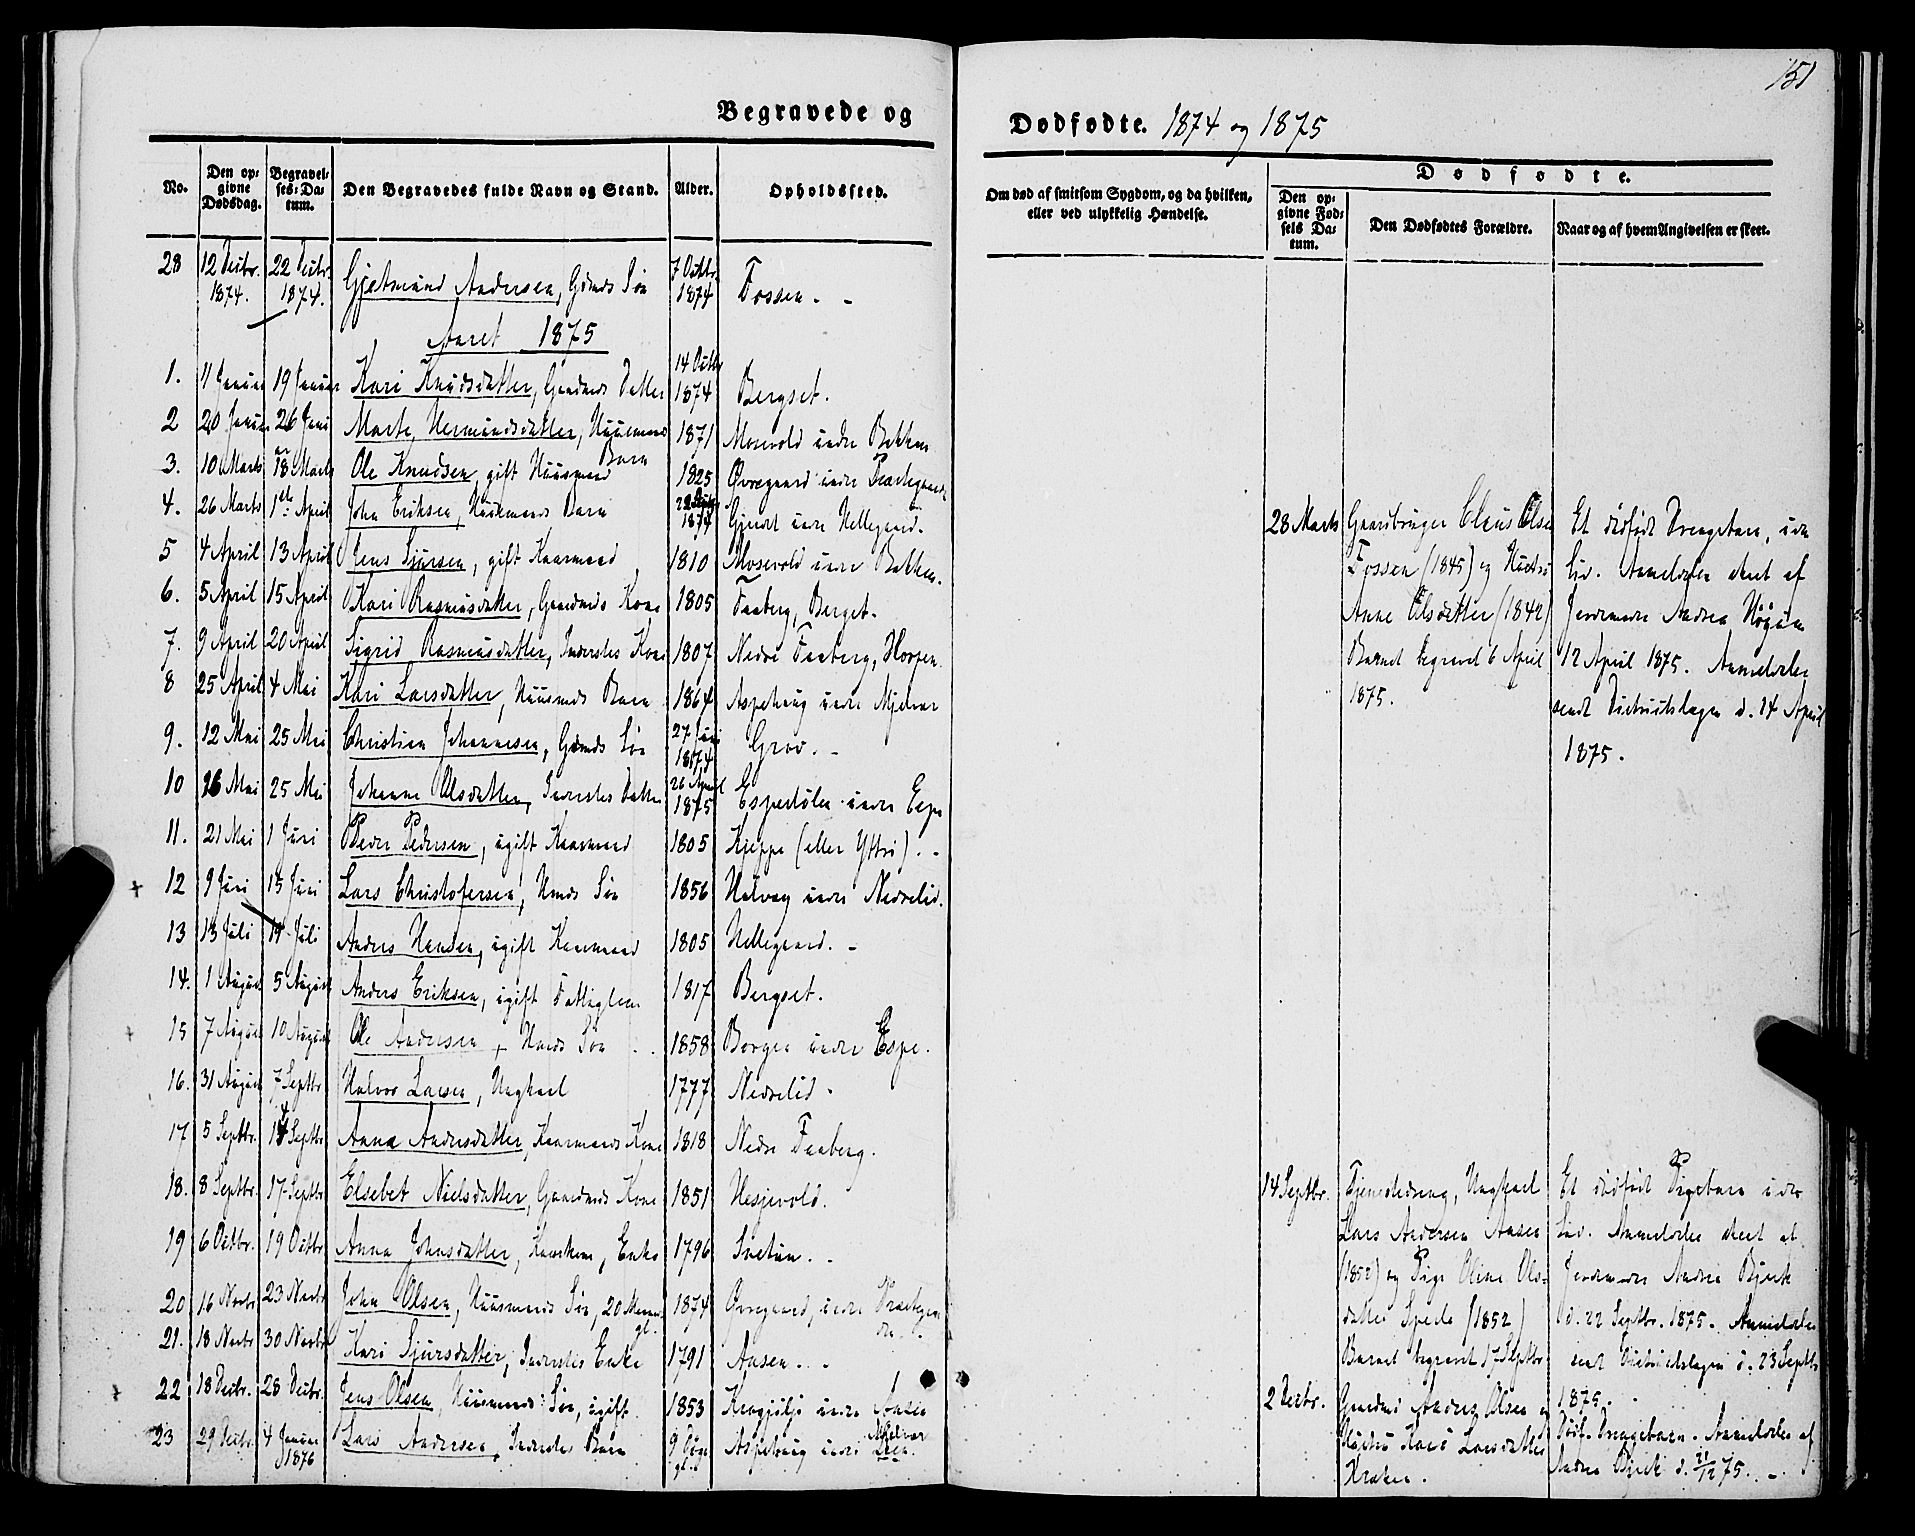 151
Begravede og
Dødfødte. 1874 og 1875
No.
Den opgivne Dødsdag.
Begravelses-Datum.
Den Begravedes fulde Navn og Stand.
Alder.
Opholdssted.
Om død af smitsom Sygdom, og da hvilken, eller ved ulykkelig Hændelse.
Dødfødte.
Den opgivne Fødsels Datum.
Den Dødfødtes Forældre.
Naar og af hvem Angivelsen er skeet.
28 12 Decbr. 1874. 22 Decbr. 1874. Gjertmund Andersen, Gdmds Søn 7 Octbr. 1874 Fossen.
Aaret 1875
1. 11 Januar 19 Januar Kari Knudsdatter, Gaardmds Datter 14 Octbr 1874 Bergset.
2 20 Januar 26 Januar Marte Hermundsdatter, Huusmands Barn 1871 Mosevold under Bakken
3. 10 Marts 18 Marts Ole Knudsen, gift Huusmand 1825 Øvregaard under
4. 26 Marts 1ste April John Eriksen, Huusmands Barn 1874 under Hillegaard.
5 4 April 13 April Jens Sjursen, gift Kaarmand 1810 Mosevold under Bakken.
6. 5 April 15 April Kari Rasmusdatter, Gaardmds Kone 1805 Faaberg, Berget.
7. 9 April 20 April Sigrid Rasmusdatter, Inderstes Kone 1807 Nedre Faaberg, Horpen.
8 25 April 4 Mai Kari Larsdatter, Huusmds Barn 1864 Aspehaug under Mjelvar
9. 12 Mai 25 Mai Christian Johannesen, Gdmds Søn 27 Juni 1874 Grov.
10 16 Mai 25 Mai Johanne Olsdatter, Inderstes Datter 26 April 1875 Espedølen under Espe
11. 21 Mai 1 Juni Peder Pedersen, ugift Kaarmand 1805 Kjeppe (eller Yttri).
12 9 Juni 15 Juni Lars Christofersen, Hmds Søn 1856 Halvæg under Nedrelid.
13 13 Juli Juli Anders Hansen, ugift Kaarmand 1805 Hillegaard.
14. 1 August 5 August Anders Eriksen, ugift Fattiglem 1817 Bergset.
15 7 August 10 August Ole Andersen, Hmds Søn 1858 Borgen under Espe.
16. 31 August 7 Septbr Halvor Larsen, Ungkarl 1777 Nedrelid.
17 5 Septbr. 14 Septbr. Anna Andersdatter, Kaarmands Kone 1818 Nedre Faaberg.
18. 8 Septbr. 17 Septbr. Elsebet Nielsdatter, Gaardmds Kone 1851 Hesjevold.
19 6 Octbr. 19 Octbr. Anna Johnsdatter, Enke 1796 Snetun.
20 16 Novbr 23 Novbr John Olsen, Huusmands Søn, 20 gl. 1874 Øvregaard, under
21. 18 Novbr 30 Novbr Kari Sjursdatter, Inderstes Enke 1791 Aasen.
22 18 Decbr. 28 Decbr. Jens Olsen, Huusmands Søn, ugift 1853 under Aasen
23 29 Decbr. 4 Januar 1876 Lars Andersen, Inderstes Barn 9 Dage gl. Aspehaug under Mjelvar
28 Marts Gaardbruger Elius Olsen
Fossen (1845) og Hustru
Anne Olsdatter (1842)
Barnet begravet 6 April
1875.
Et dødfødt Drengebarn, uden
Liv. Anmeldelse skeet af
Jordemoder Andrea
12 April 1875. Anmeldelse
sendt Districtslægen d. 14 April
1875.
14 Septbr. Tjenestedreng, Ungkarl
Lars Andersen Aasen
(1852) og Pige Oline Ols-
datter (1852)
Barnet begravet 17 Septbr
Et dødfødt Pigebarn uden
Liv. Anmeldelse skeet af
Jordemoder Andrea Bjerk
d. 22 Septbr. 1875. Anmeldelse
sendt Districtslægen d. 23 Septbr
1875.
2 Decbr. Gaardmd Anders Olsen og
Hustru Kari Larsdatter
Kraken.
Dødf. Drengebarn. Anmeldelse af
Andrea Bjerk d. 21/12 75.